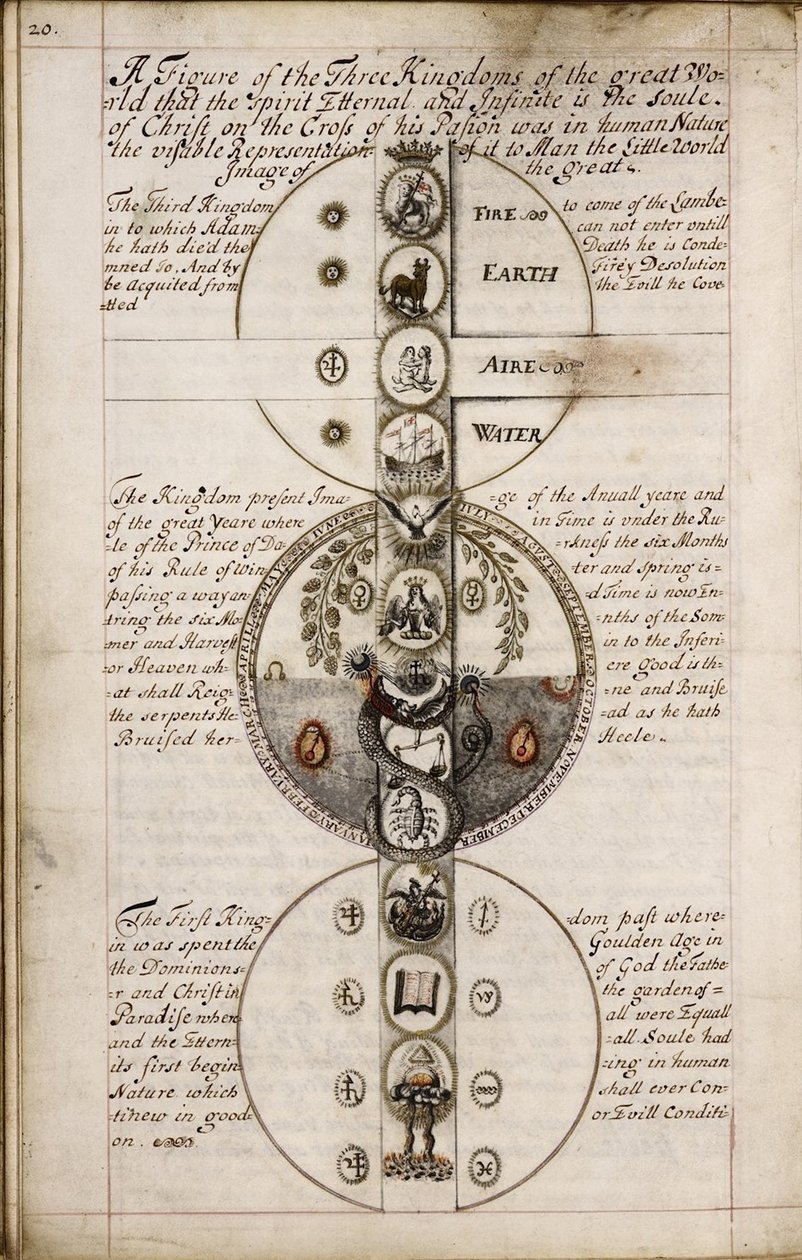 20.
A Figure of the Three Kingdoms of the great Wo=
=rld that the spirit Etternal and Infinite is the soule.
of Christ on the Cross of his Pasion was in human Nature
the visable Representation= =of it to Man the Little World
Image of the great
The Third Kingdom to come of the Lambe
in to which Adam can not enter vntill
he hath died the Death he is Conde=
mned to, And by Firey Desolution
be Acquited from the Evill he Cove=
=tted
FIRE
EARTH
AIRE
WATER
The Kingdom present Ima= =ge of the Anuall yeare and
of the great Yeare where in Time is vnder the Ru=
=le of the Prince of Da= =rkness the six Months
of his Rule of Win= =ter and Spring is=
passing a way an= =d Time is now En=
tring the six Mo= =nths of the Som=
mer and Harvest in to the Inferi=
=or Heaven wh= ere good is th=
=at shall Reig= =ne and Bruise
the serpents He= =ad as he hath
Bruised her= Heele.
IANVARY FEBRVARY MARCH APRILL MAY IVNE IVLY AGVST SEPTEMBER OCTOBER NOVEMBER DECEMBER
The First King= =dom past where=
in was spent the Goulden Age in
the Dominions= of God the Fathe=
=r and Christ in the garden of=
Paradise when all were Equall
and the Ettern= =all Soule had
its first begin= =ing in human
Nature which shall ever Con=
=tinew in good= or Evill Conditi=
on.